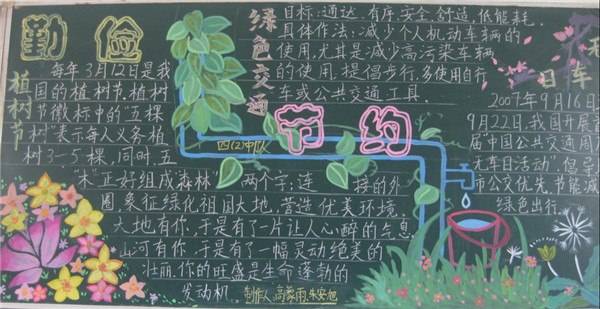 勤俭
节约
植树节
每年3月12日是我
国的植树节,植树
节徽标中的"五棵
树"表示每人义务植
树3-5棵,同时,五
木"正好组成森林 两个字;连 接的外
圈,象征绿化祖国大地,营造优美环境。
大地有你,于是有了一片让人心醉的
山河有你,于是有了一幅灵动绝美的
壮丽,你的旺盛是生命蓬勃的
发动机。
四(2)中队
制作人:高蒙雨、朱安旭
绿色交通
目标:通达、有序、安全、舒适、低能耗。
具体作法:减少个人机动车车辆的
使用,尤其是减少高污染车辆
的使用,提倡步行,多使用自行
车或公共交通工具。
无
日车
2007年9月16日
9月22日,我国开展首
届中国公共交通周
无车日活动"倡导
市公交优先,节能减
绿色出行